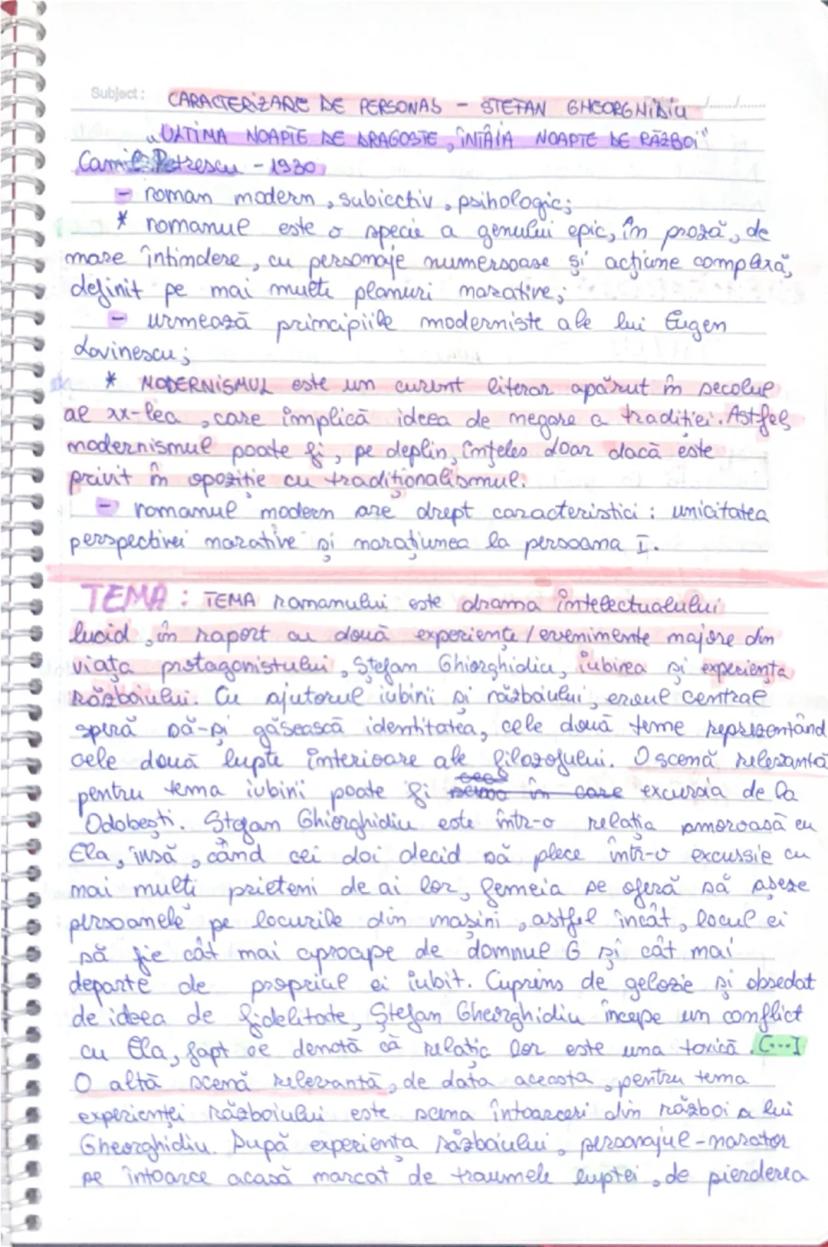 Subject:
CARACTERIZARE DE PERSONAJ - ȘTEFAN GHEORGHIDIU
"ULTIMA NOAPTE DE DRAGOSTE, ÎNTÂIA NOAPTE DE RĂZBOI"
Camil Petrescu - 1930
- roman modern, subiectiv, psihologic;
* romanul este o specie a genului epic, în proză, de
mare întindere, cu personaje numeroase și acțiune complexă,
definit pe mai multe planuri narative;
- urmează principiile moderniste ale lui Eugen
Lovinescu;
* MODERNISMUL este un curent literar apărut în secolul
al XX-lea, care implică ideea de negare a tradiției. Astfel,
modernismul poate fi, pe deplin, înțeles doar dacă este
privit în opoziție cu tradiționalismul.
- romanul modern are drept caracteristici: unicitatea
perspectivei narative și narațiunea la persoana I.
TEMA: TEMA romanului este drama intelectualului
lucid, în raport cu două experiențe/evenimente majore din
viața protagonistului, Ștefan Ghiorghidiu, iubirea și experiența
războiului. Cu ajutorul iubirii și războiului, eroul central
speră să-și găsească identitatea, cele două teme reprezentând
cele două lupte interioare ale filozofului. O scenă relevantă
pentru tema iubirii poate fi în care excursia de la
Odobești. Ștefan Ghiorghidiu este într-o relația amoroasă cu
Ela, însă, când cei doi decid să plece într-o excursie cu
mai mulți prieteni de ai lor, femeia se oferă să așeze
persoanele pe locurile din mașini, astfel încât, locul ei
să fie cât mai aproape de domnul G și cât mai
departe de propriul ei iubit. Cuprins de gelozie și obsedat
de ideea de fidelitate, Ștefan Gheorghidiu începe un conflict
cu Ela, fapt ce denotă că relația lor este una toxică. [...]
O altă scenă relevantă, de data aceasta, pentru tema
experienței războiului este scena întoarceri din război a lui
Gheorghidiu. După experiența războiului, personajul-narator
se întoarce acasă marcat de traumele luptei, de pierderea